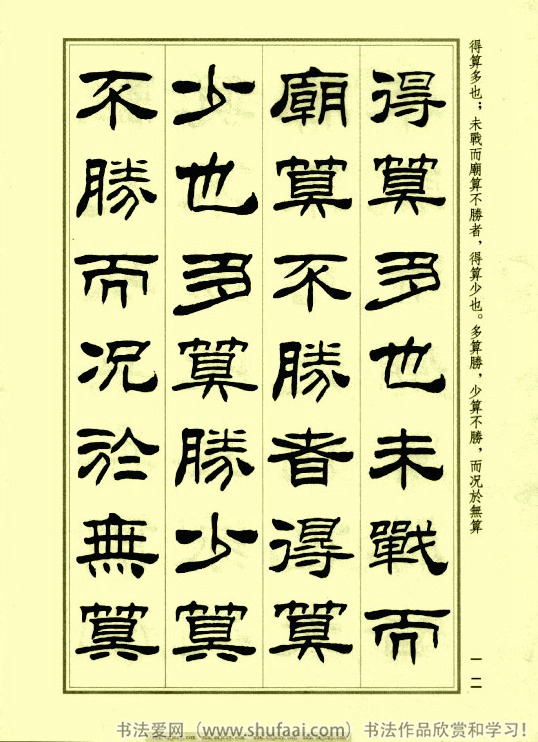 得算多也；未戰而廟算不勝者，得算少也。多算勝，少算不勝，而况於無算
得算多也未戰而
廟算不勝者得算
少也多算勝少算
不勝而况於無算
一二
书法爱网（www.shufaai.com）书法作品欣赏和学习！